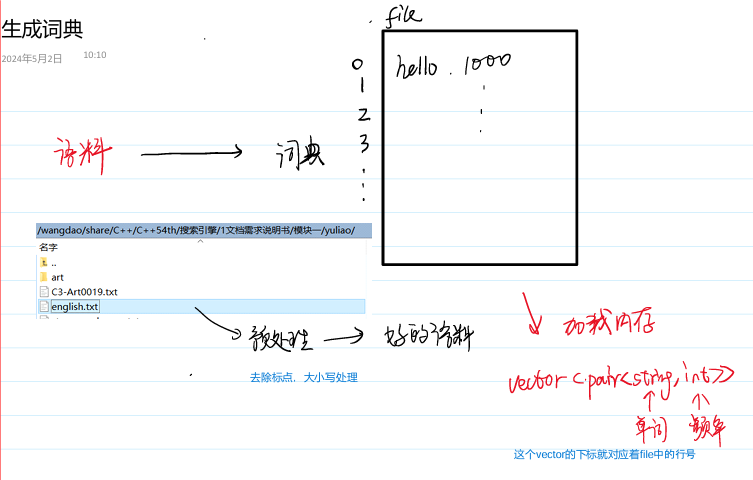 生成词典
2024年5月2日 10:10
file
0 hello . 1000
1
2
3
语料 词典
/wangdao/share/C++/C++54th/搜索引擎/1文档需求说明书/模块一/yuliao/
名字
..
art
C3-Art0019.txt
english.txt
预处理 好的语料
去除标点，大小写处理
加载内存
vector<pair<string,int>>
单词 频率
这个vector的下标就对应着file中的行号